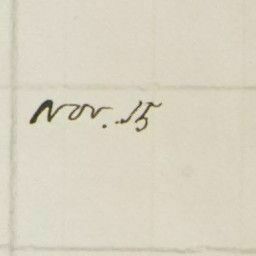 Nov. 15